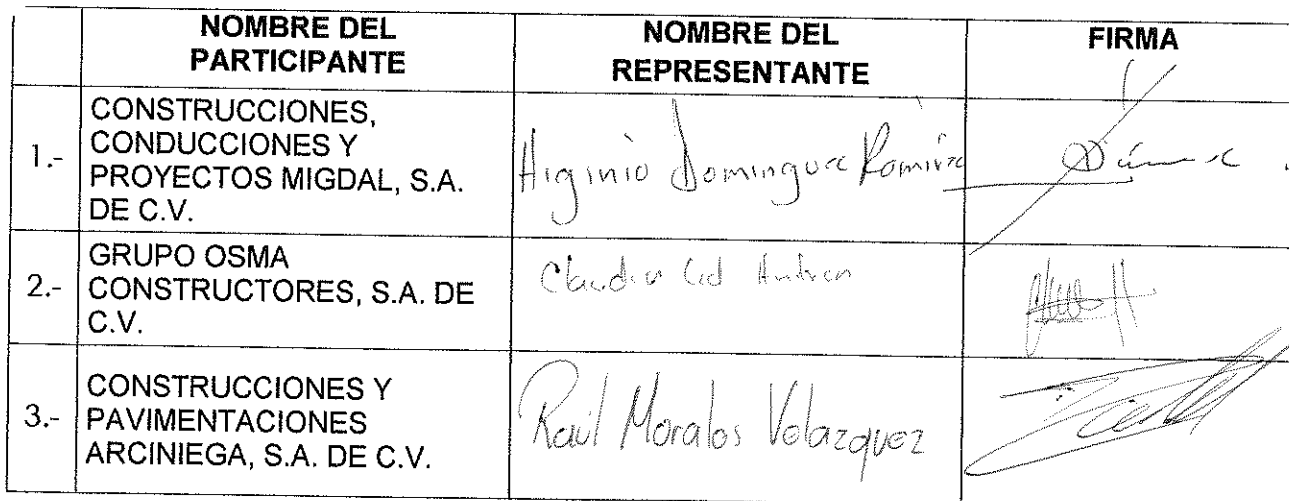 NOMBRE DEL PARTICIPANTE
NOMBRE DEL REPRESENTANTE
FIRMA
1.-
CONSTRUCCIONES,
CONDUCCIONES Y
PROYECTOS MIGDAL, S.A.
DE C.V.
Higinio Dominguez Ramirez
2.-
GRUPO OSMA
CONSTRUCTORES, S.A. DE
C.V.
Claudia Cid
3.-
CONSTRUCCIONES Y
PAVIMENTACIONES
ARCINIEGA, S.A. DE C.V.
Raúl Morales Velazquez